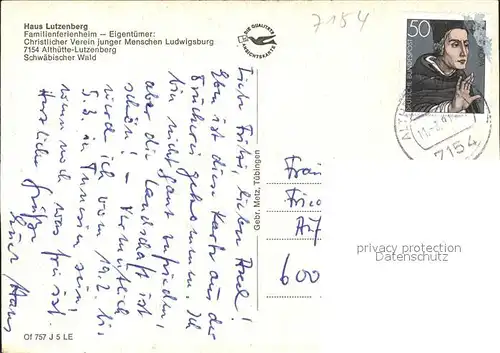 Haus Lutzenberg
Familienferienheim — Eigentümer:
Christlicher Verein junger Menschen Ludwigsburg
7154 Althütte-Lutzenberg
Schwäbischer Wald
DIE QUALITÄTS
ANSICHTSKARTE
7154
50
DEUTSCHE BUNDESPOST
7154
Liebe Fritzi, lieber Axel!
Eben ist diese Karte aus der
Druckerei gekommen. Ich
bin nicht ganz zufrieden,
aber die Landschaft ist
schön! – Vermutlich
werde ich vom 19.2. bis
5.3. in Tunesien sein,
wenn noch was frei ist.
Herzliche Grüße
Euer Hans
Gebr. Metz, Tübingen
Frau
600
privacy protection
Datenschutz
Of 757 J 5 LE